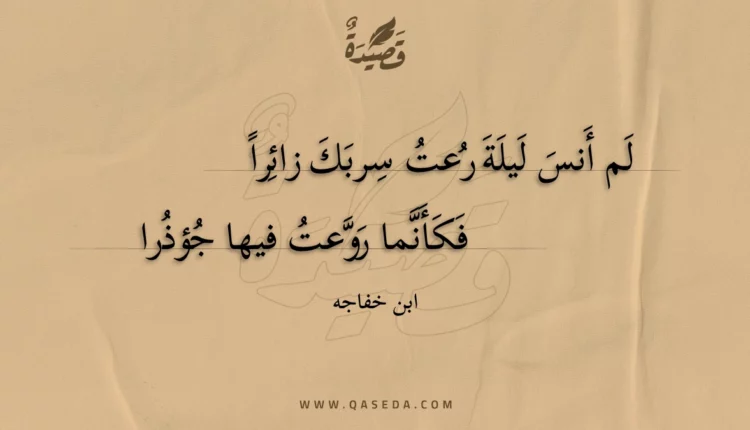 قَصِيْدَةٌ
لَم أَنسَ لَيلَةَ رُعتُ سِربَكَ زائِراً
فَكَأَنَّما رَوَّعتُ فيها جُؤذُرا
ابن خفاجه
WWW.QASEDA.COM